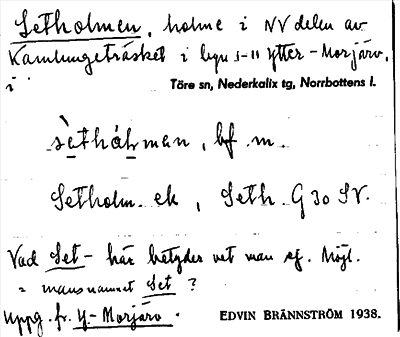 Setholmen, holme i NV delen av
Kamlungeträsket i byn Ytter-Morjärv,
i
Töre sn, Nederkalix tg, Norrbottens l.
sèthåḷman, bf. m.
Setholm. ek, Seth. G 30 SV.
Vad Set- här betyder vet man ej. Möjl.
= mansnamnet Set ?
Uppg. fr. Y-Morjärv.
EDVIN BRÄNNSTRÖM 1938.